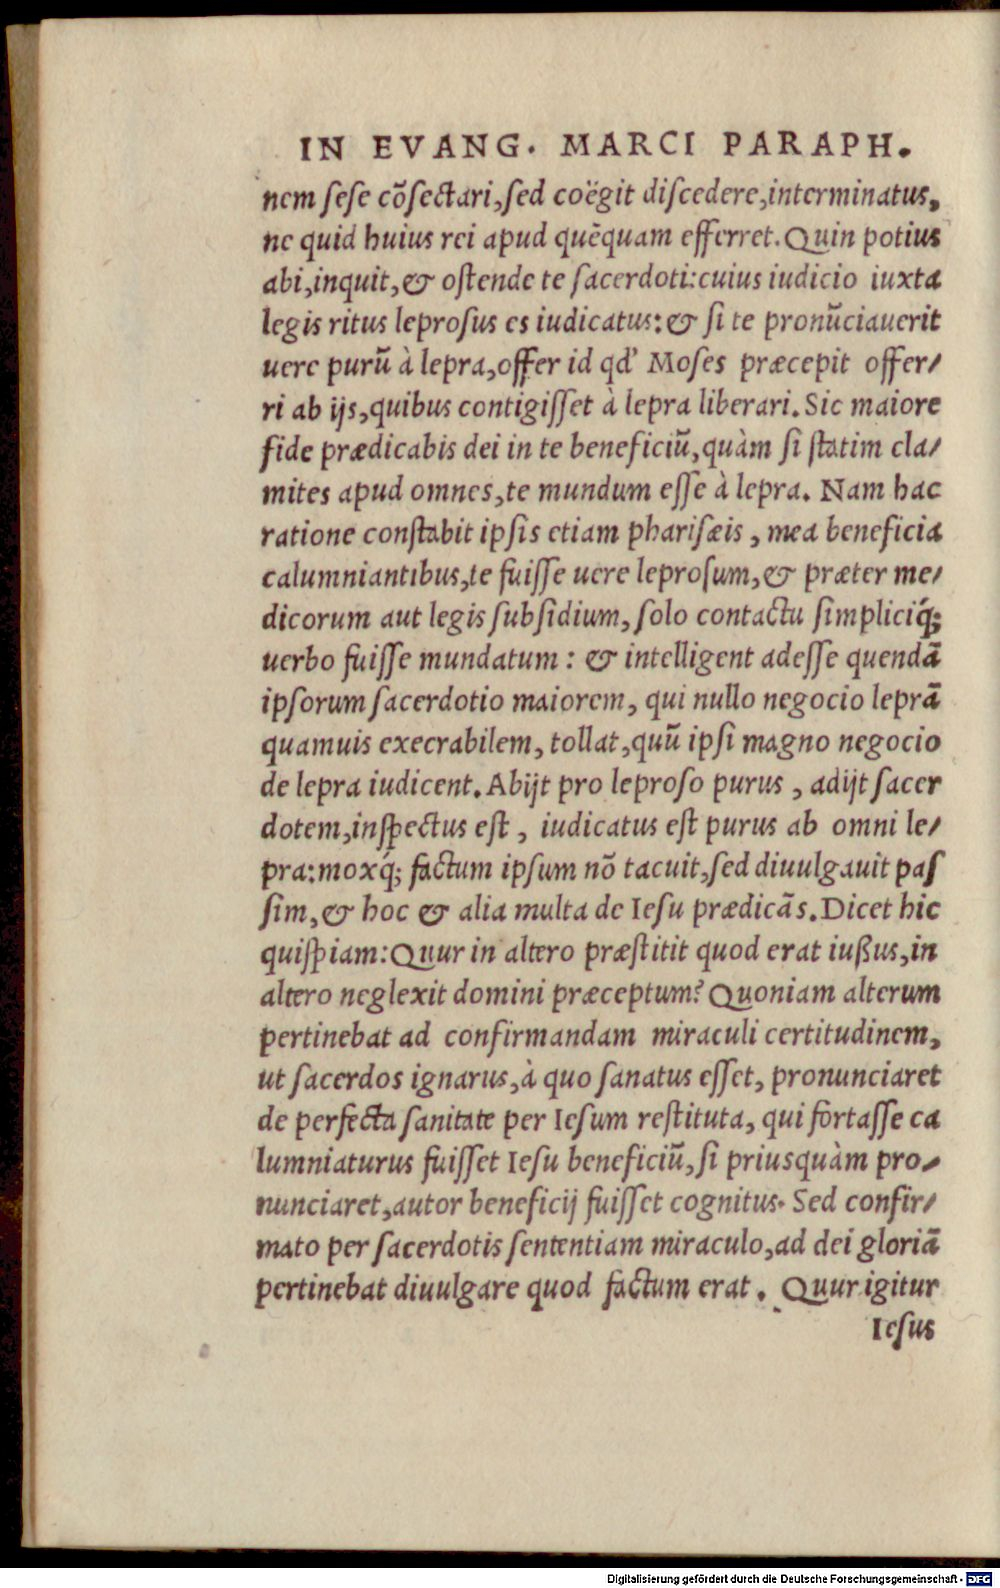 IN EVANG. MARCI PARAPH.
nem sese cõsectari, sed coëgit discedere, interminatus,
ne quid huius rei apud quẽquam efferret. Quin potius
abi, inquit, & ostende te sacerdoti: cuius iudicio iuxta
legis ritus leprosus es iudicatus: & si te pronũciauerit
uere purũ à lepra, offer id qd' Moses præcepit offer/
ri ab ijs, quibus contigisset à lepra liberari. Sic maiore
fide prædicabis dei in te beneficiũ, quàm si statim cla/
mites apud omnes, te mundum esse à lepra. Nam hac
ratione constabit ipsis etiam pharisæis, mea beneficia
calumniantibus, te fuisse uere leprosum, & præter me/
dicorum aut legis subsidium, solo contactu simpliciq́;
uerbo fuisse mundatum: & intelligent adesse quendã
ipsorum sacerdotio maiorem, qui nullo negocio leprã
quamuis execrabilem, tollat, quũ ipsi magno negocio
de lepra iudicent. Abijt pro leproso purus, adijt sacer
dotem, inspectus est, iudicatus est purus ab omni le/
pra: moxq́; factum ipsum nõ tacuit, sed diuulgauit pas
sim, & hoc & alia multa de Iesu prædicãs. Dicet hic
quispiam: Quur in altero præstitit quod erat iußus, in
altero neglexit domini præceptum? Quoniam alterum
pertinebat ad confirmandam miraculi certitudinem,
ut sacerdos ignarus, à quo sanatus esset, pronunciaret
de perfecta sanitate per Iesum restituta, qui fortasse ca
lumniaturus fuisset Iesu beneficiũ, si priusquàm pro/
nunciaret, autor beneficij fuisset cognitus. Sed confir/
mato per sacerdotis sententiam miraculo, ad dei gloriã
pertinebat diuulgare quod factum erat. Quur igitur
Iesus
Digitalisierung gefördert durch die Deutsche Forschungsgemeinschaft - DFG